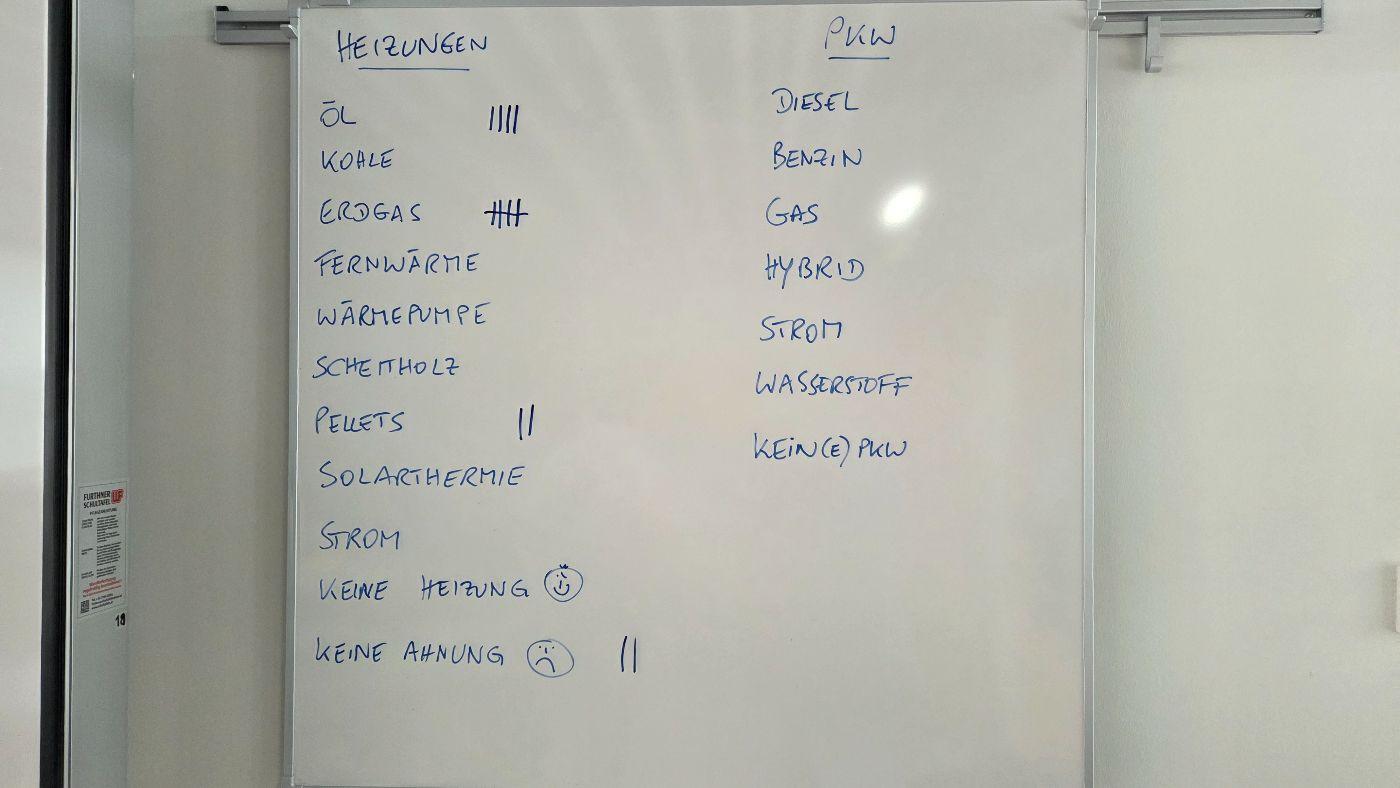 HEIZUNGEN
ÖL ||||
KOHLE
ERDGAS 卌
FERNWÄRME
WÄRMEPUMPE
SCHEITHOLZ
PELLETS ||
SOLARTHERMIE
STROM
KEINE HEIZUNG
KEINE AHNUNG ||
PKW
DIESEL
BENZIN
GAS
HYBRID
STROM
WASSERSTOFF
KEIN(E) PKW
FURTHNER
SCHULTAFEL